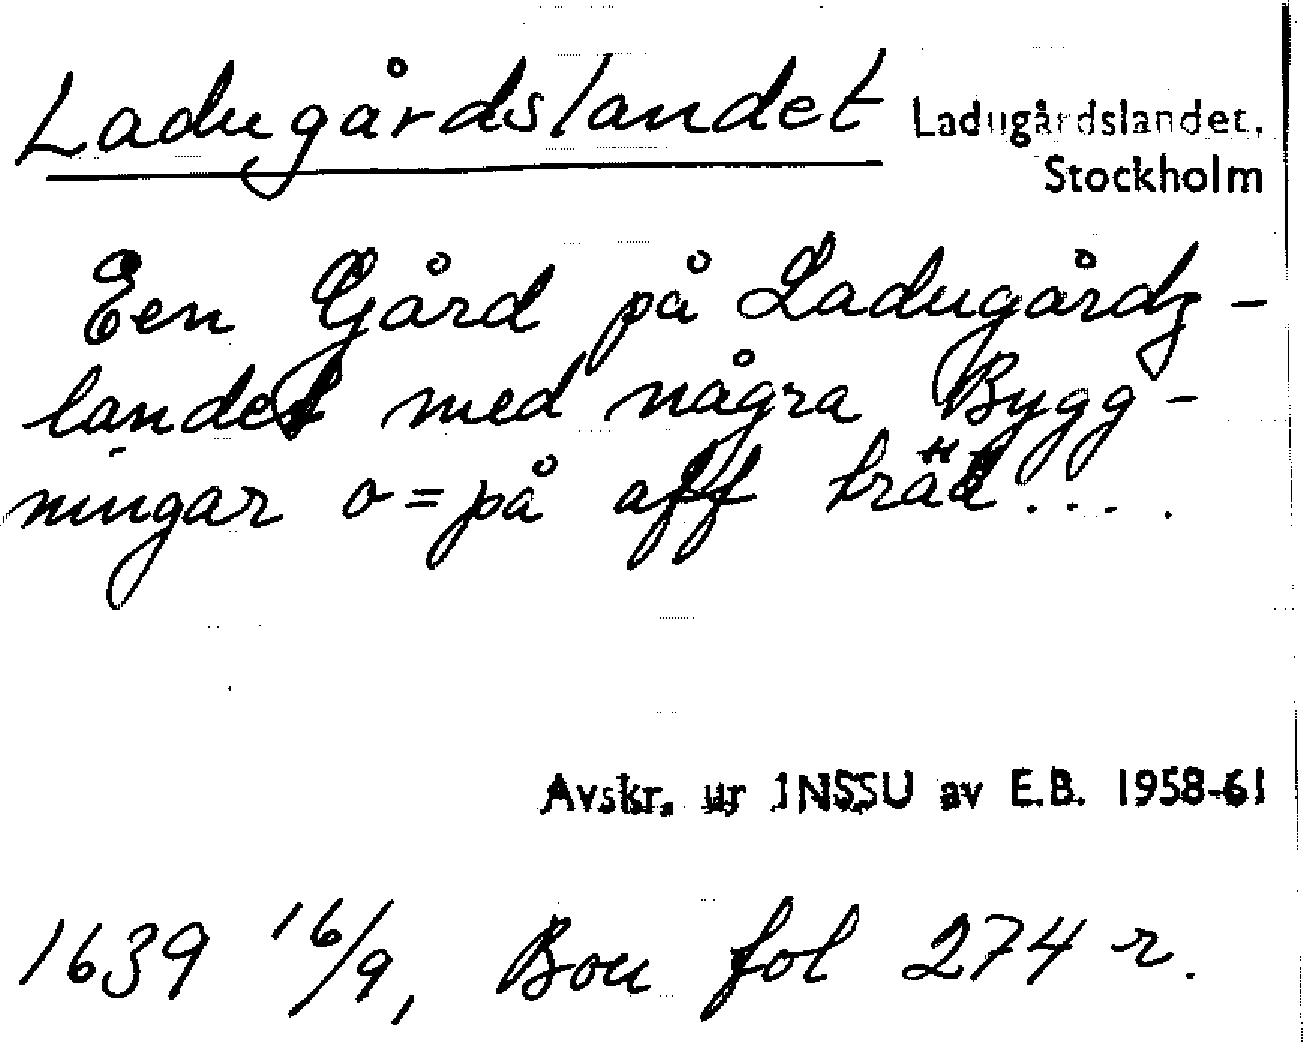 Ladugårdslandet
Ladugårdslandet.
Stockholm
Een Gård på Ladugårdz-
landet med några Bygg-
ningar o=på aff trää....
Avskr. ur INSSU av E.B. 1958-61
1639 16/9, Bou fol 274 r.